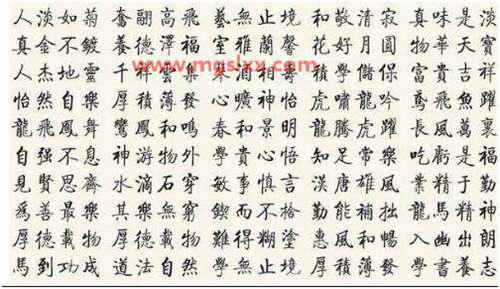 人淡如菊 奮翮高飛 藝無止境 和敬清寂 真味是淡
真金不鍍 養德澤福 室雅蘭馨 花好月圓 物華天寶
人杰地靈 千祥雲集 心相 學儲 富貴吉祥
怡然自樂 厚積薄發 心曠神怡 虎嘯龍吟 鳶飛魚躍
龍飛鳳舞 鸞鳳和鳴 春和景明 龍騰虎躍 長風萬裏
自强不息 神游物外 學貴心悟 知足常樂 吃虧是福
見賢思齊 水滴石穿 敏事慎言 漢唐雄風 業精于勤
爲善最樂 其樂無窮 而不 勤能補拙 龍馬精神
厚德載物 厚德載物 難得糊塗 惠風和暢 入幽出朗
馬到功成 道法自然 學無止境 厚積薄發 學書養志
www.mgslxx.com